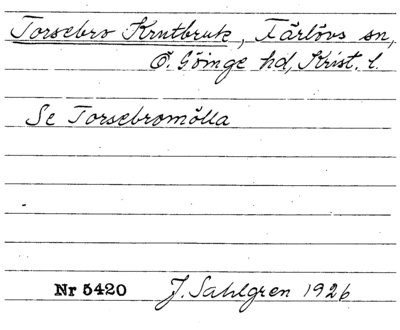 Torsebro Krutbruk, Färlövs sn,
Ö. Göinge hd, Krist. l.
Se Torsebromölla
Nr 5420 J. Sahlgren 1926